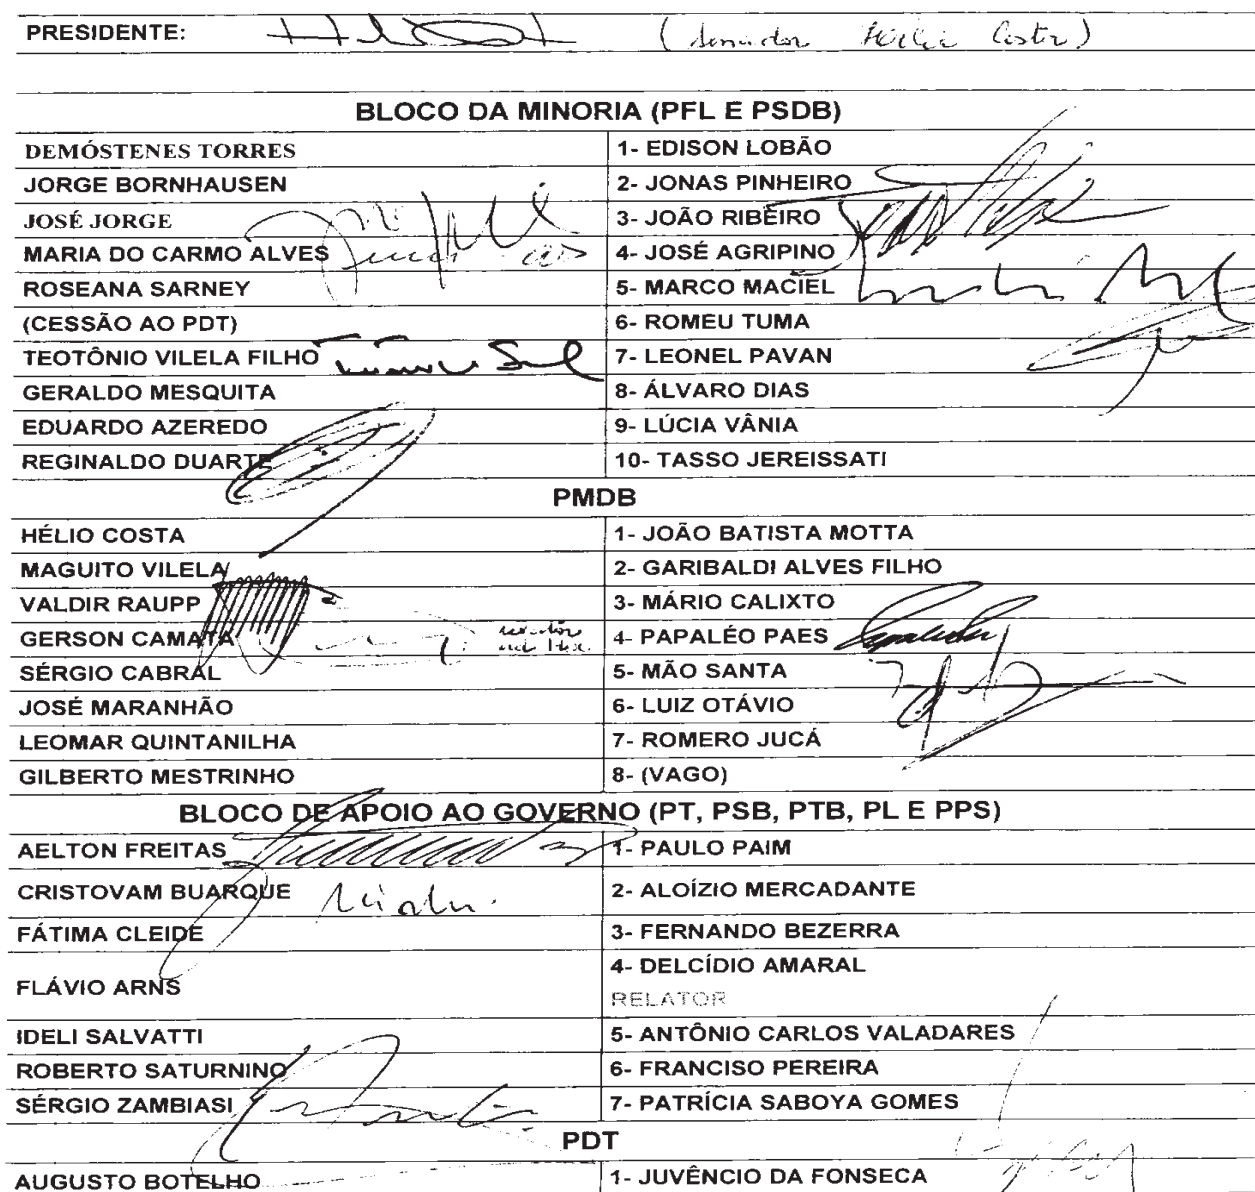 PRESIDENTE: (Senador Hélio Costa)
BLOCO DA MINORIA (PFL E PSDB)
DEMÓSTENES TORRES 1- EDISON LOBÃO
JORGE BORNHAUSEN 2- JONAS PINHEIRO
JOSÉ JORGE 3- JOÃO RIBEIRO
MARIA DO CARMO ALVES 4- JOSÉ AGRIPINO
ROSEANA SARNEY 5- MARCO MACIEL
(CESSÃO AO PDT) 6- ROMEU TUMA
TEOTÔNIO VILELA FILHO 7- LEONEL PAVAN
GERALDO MESQUITA 8- ÁLVARO DIAS
EDUARDO AZEREDO 9- LÚCIA VÂNIA
REGINALDO DUARTE 10- TASSO JEREISSATI
PMDB
HÉLIO COSTA 1- JOÃO BATISTA MOTTA
MAGUITO VILELA 2- GARIBALDI ALVES FILHO
VALDIR RAUPP 3- MÁRIO CALIXTO
GERSON CAMATA 4- PAPALÉO PAES
SÉRGIO CABRAL 5- MÃO SANTA
JOSÉ MARANHÃO 6- LUIZ OTÁVIO
LEOMAR QUINTANILHA 7- ROMERO JUCÁ
GILBERTO MESTRINHO 8- (VAGO)
BLOCO DE APOIO AO GOVERNO (PT, PSB, PTB, PL E PPS)
AELTON FREITAS 1- PAULO PAIM
CRISTOVAM BUARQUE 2- ALOÍZIO MERCADANTE
FÁTIMA CLEIDE 3- FERNANDO BEZERRA
FLÁVIO ARNS 4- DELCÍDIO AMARAL
RELATOR
IDELI SALVATTI 5- ANTÔNIO CARLOS VALADARES
ROBERTO SATURNINO 6- FRANCISO PEREIRA
SÉRGIO ZAMBIASI 7- PATRÍCIA SABOYA GOMES
PDT
AUGUSTO BOTELHO 1- JUVÊNCIO DA FONSECA